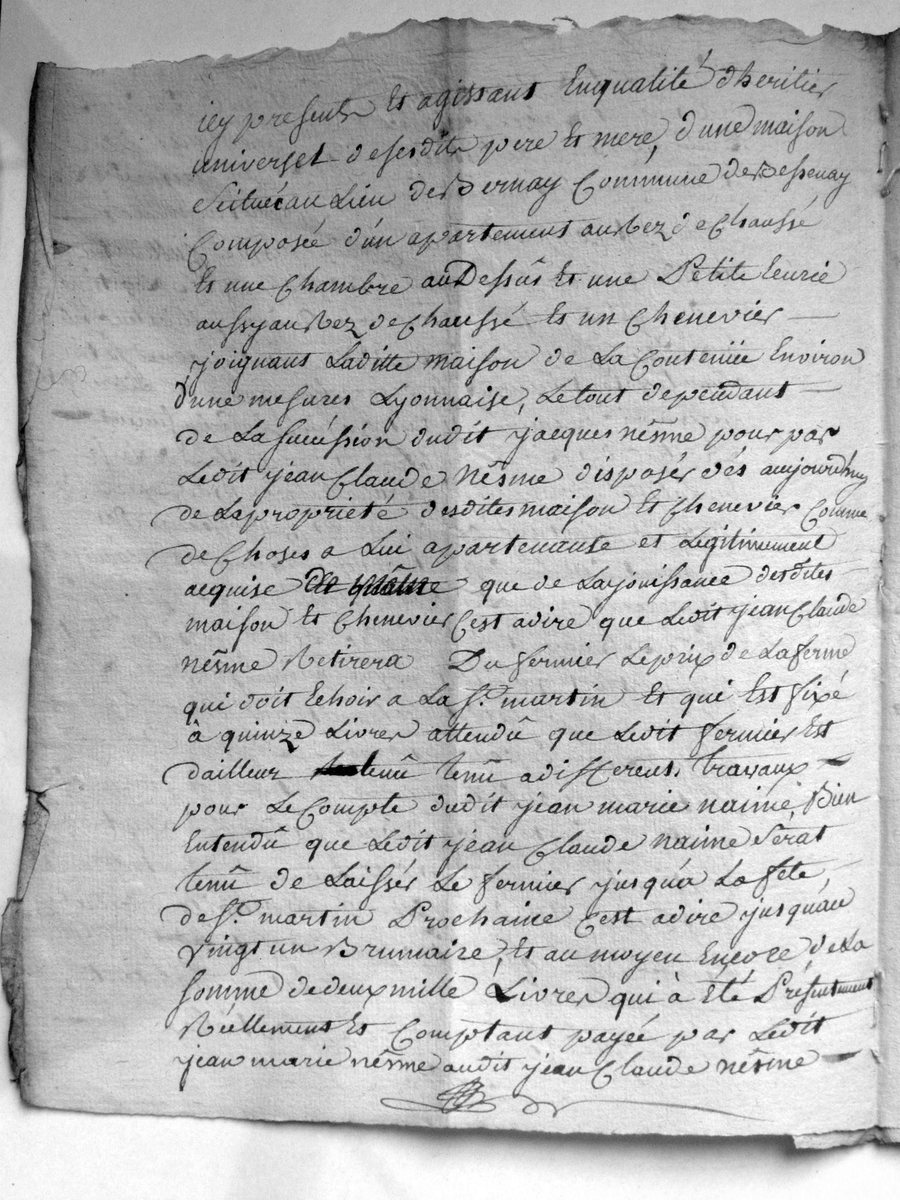 icy present Et agissant Enqualité d'heritier
universel desesdits pere Et mere, d'une maison
Scituée au Lieu de Bernay Commune de Bessenay
Composée d'un apartement au Rez de Chaussé
Et une Chambre au Dessûs Et une Petite Ecurie
aussy au Rez de Chaussé Et un Chenevier —
joignant Laditte maison de La Contenüe Environ
d'une mesures Lyonnaise, Le tout dependant
de La succéssion dudit jacques nêsme pour par
Ledit jean Claude nêsme disposér dés aujourdhuy
de La proprieté desdites maison Et Chenevier Comme
de Choses a Lui apartenante et Légitimement
acquise que de La jouissance desdites
maison Et Chenevier C'est adire que Ledit jean Claude
nêsme Retirera Du fermier Le prix de La ferme
qui doit Echoir a La St. martin Et qui Est fixé
à quinze Livres attendû que Ledit fermier Est
dailleur tenû a differents travaux —
pour Le Compte dudit jean marie naime, Bien
Entendû que Ledit jean Claude naime Sérat
tenû de Laissér Le fermier jusqu'a La fête
de St. martin Prochaine C'est adire jusquau
vingt un Brumaire, Et au moyen Encore de La
somme de deux mille Livres qui à Eté Présentement
Réellement Et Comptant payée par Ledit
jean marie nêsme audit jean Claude nêsme —